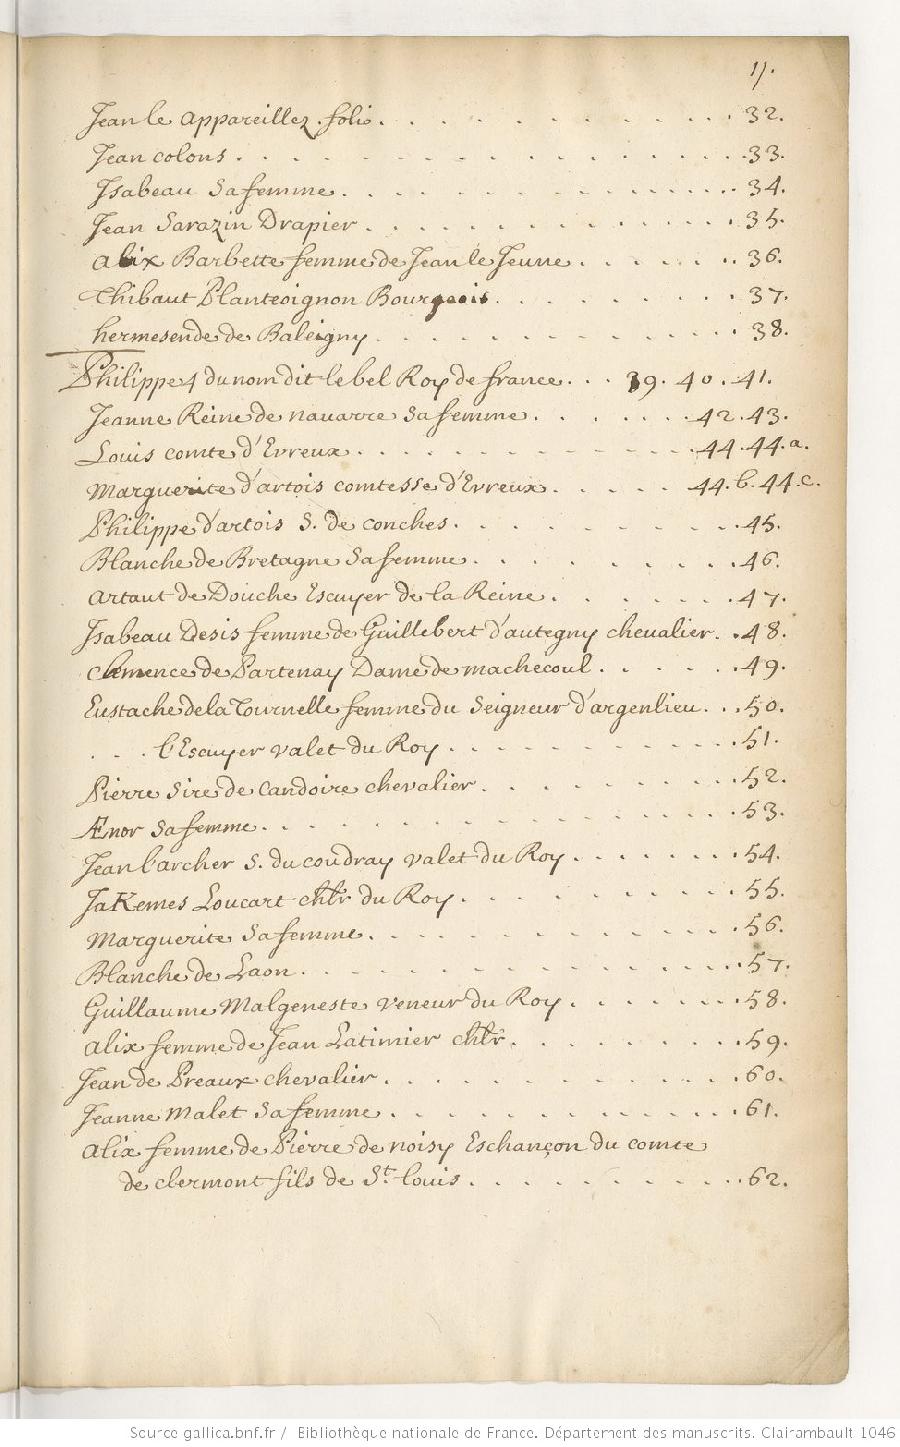 Jean le appareillez. folio. . . . . . . . . . . 32.
Jean colons . . . . . . . . . . . . . . 33.
Isabeau sa femme. . . . . . . . . . . . 34.
Jean Sarazin Drapier . . . . . . . . . . 35.
alix Barbette femme de Jean le Jeune . . . . . . . 36.
Thibaut Planteoignon Bourgeois . . . . . . . . 37.
hermesende de Baleigny . . . . . . . . . . 38.
Philippe 4 du nom dit le bel Roy de france . . . 39. 40. 41.
Jeanne Reine de navarre sa femme . . . . . . 42. 43.
Louis comte d'Evreux . . . . . . . . . . 44. 44. a.
Marguerite d'artois comtesse d'Evreux . . . . . 44. b. 44. c.
Philippe d'artois S. de conches . . . . . . . . . 45.
Blanche de Bretagne sa femme . . . . . . . . 46.
artaut de Douche Escuyer de la Reine . . . . . . . 47.
Isabeau Desis femme de Guillebert d'autegny chevalier . . 48.
clemence de Partenay Dame de machecoul . . . . . . 49.
Eustache de la Tournelle femme du Seigneur d'argenlieu . . . 50.
. . . l'Escuyer valet du Roy . . . . . . . . . 51.
Pierre sire de candoire chevalier . . . . . . . . 52.
Ænor sa femme . . . . . . . . . . . . . 53.
Jean l'archer S. du coudray valet du Roy . . . . . . . 54.
JaKemes Loucart chlr du Roy . . . . . . . . . 55.
Marguerite sa femme . . . . . . . . . . . 56.
Blanche de Laon . . . . . . . . . . . . . 57.
Guillaume Malgeneste veneur du Roy . . . . . . . 58.
alix femme de Jean Latimier chlr . . . . . . . . 59.
Jean de Preaux chevalier . . . . . . . . . . . 60.
Jeanne Malet sa femme . . . . . . . . . . . 61.
alix femme de Pierre de noisy Eschançon du comte
de clermont fils de St. louis . . . . . . . . . . 62.
Source gallica.bnf.fr / Bibliothèque nationale de France. Département des manuscrits. Clairambault 1046